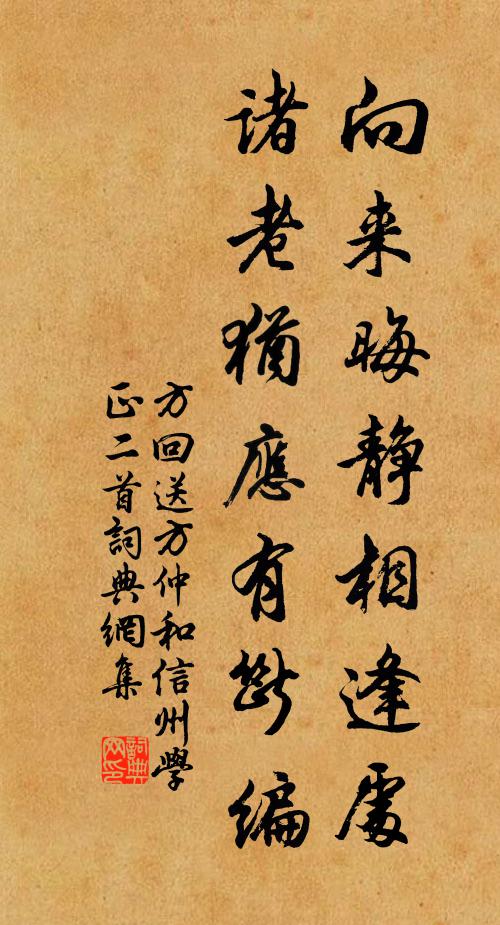 向来晦静相逢處
諸老猶應有斷編
方回送方仲和信州學
正二首詞典網集
詞典
网印